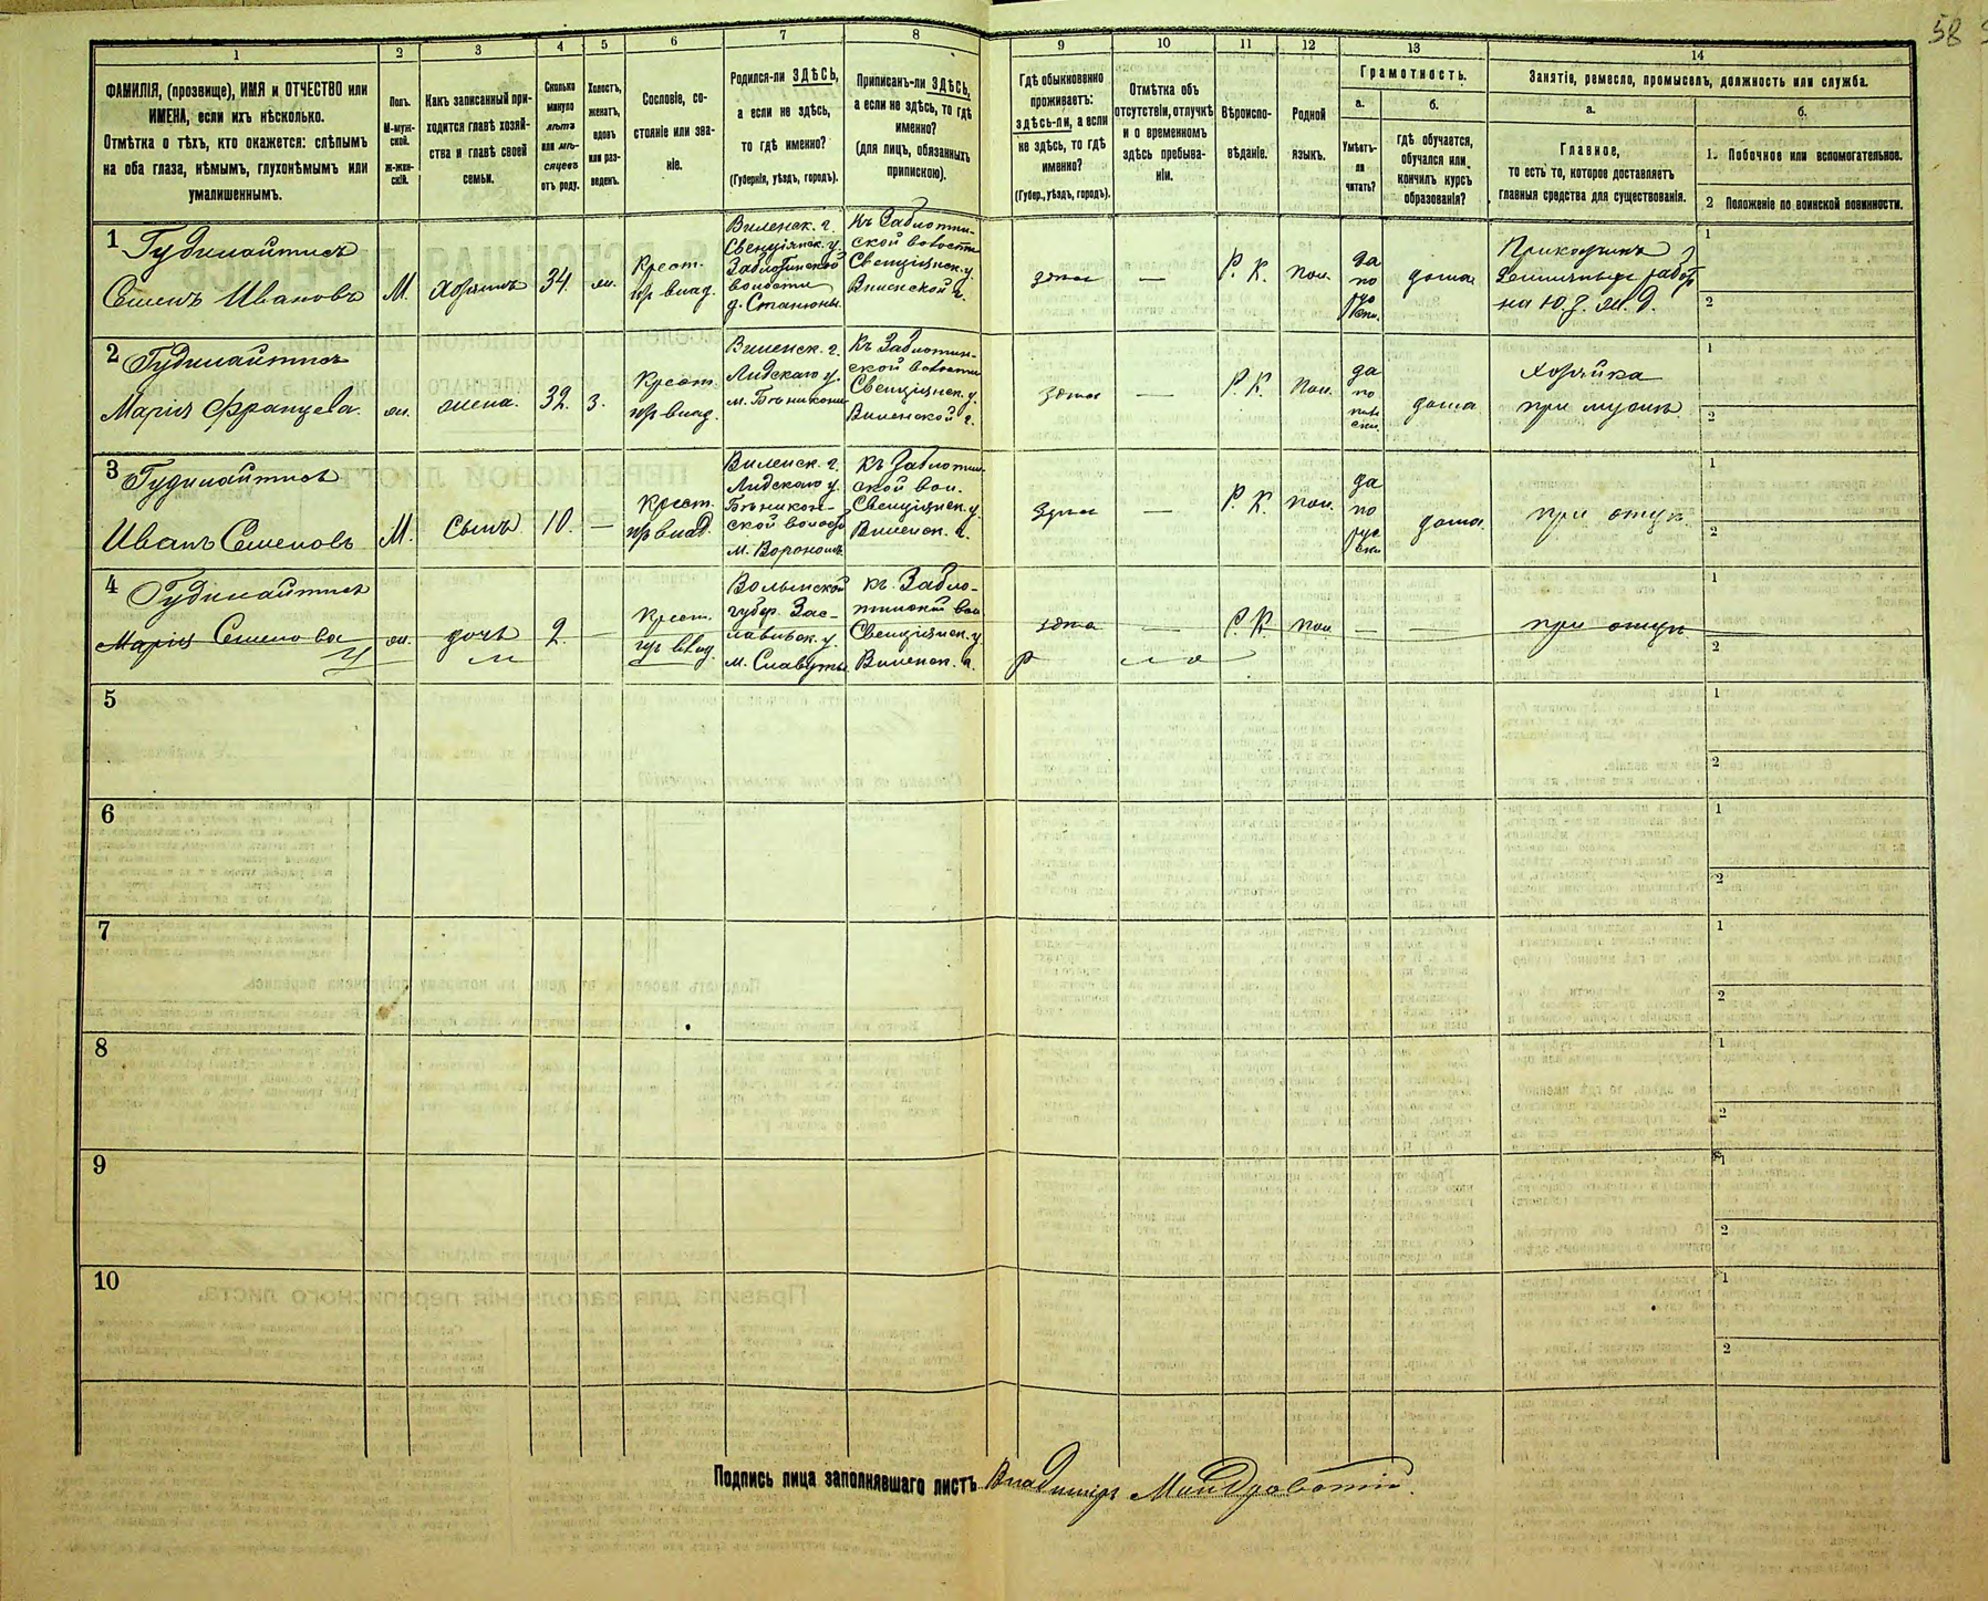 58
1
2
3
4
5
6
7
8
9
10
11
12
13
14
ФАМИЛІЯ, (прозвище), ИМЯ и ОТЧЕСТВО или
ИМЕНА, если ихъ нѣсколько.
Отмѣтка о тѣхъ, кто окажется: слѣпымъ
на оба глаза, нѣмымъ, глухонѣмымъ или
умалишеннымъ.
Полъ.
М-муж-
ской.
Ж-жен-
скій.
Какъ записанный при-
ходится главѣ хозяй-
ства и главѣ своей
семьи.
Сколько
минуло
лѣтъ
или мѣ-
сяцевъ
отъ роду.
Холостъ,
женатъ,
вдовъ
или раз-
веденъ.
Сословіе, со-
стояніе или зва-
ніе.
Родился-ли ЗДѢСЬ,
а если не здѣсь,
то гдѣ именно?
(Губернія, уѣздъ, городъ).
Приписанъ-ли ЗДѢСЬ,
а если не здѣсь, то гдѣ
именно?
(для лицъ, обязанныхъ
припискою).
Гдѣ обыкновенно
проживаетъ:
здѣсь-ли, а если
не здѣсь, то гдѣ
именно?
(Губер., уѣздъ, городъ).
Отмѣтка объ
отсутствіи, отлучкѣ
и о временномъ
здѣсь пребыва-
ніи.
Вѣроиспо-
вѣданіе.
Родной
языкъ.
Грамотность.
а.
Умѣетъ-
ли
читать?
б.
Гдѣ обучается,
обучался или
кончилъ курсъ
образованія?
Занятіе, ремесло, промыселъ, должность или служба.
а.
Главное,
то есть то, которое доставляетъ
главныя средства для существованія.
б.
1. Побочное или вспомогательное.
2 Положеніе по воинской повинности.
1
Гудилайтисъ
Семенъ Ивановъ
М.
Хозяинъ
34
жен.
Крест.
Виленск. г.
Свенцянск. у.
волости
Къ Заблоти-
ской волости
Свенцянск. у.
Виленской г.
здѣсь
—
Р. К.
пол.
да
по
дома
на Ю. З. ж. д.
1
2
2
Гудилайтисъ
Марія Францева.
ж.
жена.
32.
З.
Крест.
Виленск. г.
Лидскаго у.
Къ Заблотин-
ской волости
Свенцянск. у.
Виленской г.
здѣсь
—
Р. К.
Пол.
да
по
дома
Хозяйка
при мужѣ
1
2
3
Гудилайтисъ
Иванъ Семеновъ
М.
Сынъ
10.
—
Крест.
Виленск. г.
Лидскаго у.
Къ Заблоти-
ской вол.
Свенцянск. у.
Виленск. г.
здѣсь
—
Р. К.
пол.
да
по
дома.
при отцѣ.
1
2
4
Гудилайтисъ
Марія Семенова
ж.
дочь
2.
—
Крест.
Волынской
губер. Зас-
лавльск. у.
м. Славуты
къ Забло-
Свенцянск. у.
Виленск. г.
здѣсь
—
Р. К.
пол.
—
—
при отцѣ
1
2
5
1
2
6
1
2
7
1
2
8
1
2
9
1
2
10
1
2
Подпись лица заполнявшаго листъ Владиміръ